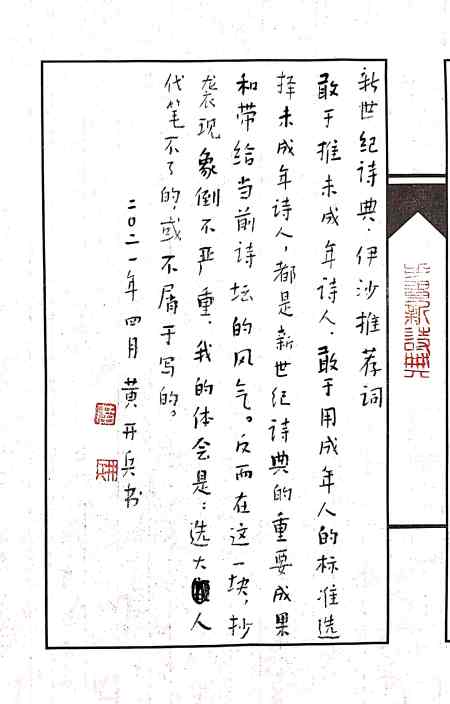 新世纪诗典·伊沙推荐词
敢于推未成年诗人、敢于用成年人的标准选
择未成年诗人，都是新世纪诗典的重要成果
和带给当前诗坛的风气。反而在这一块，抄
袭现象倒不严重，我的体会是：选大人
代笔不了的，或不屑于写的。
二〇二一年四月 黄开兵书